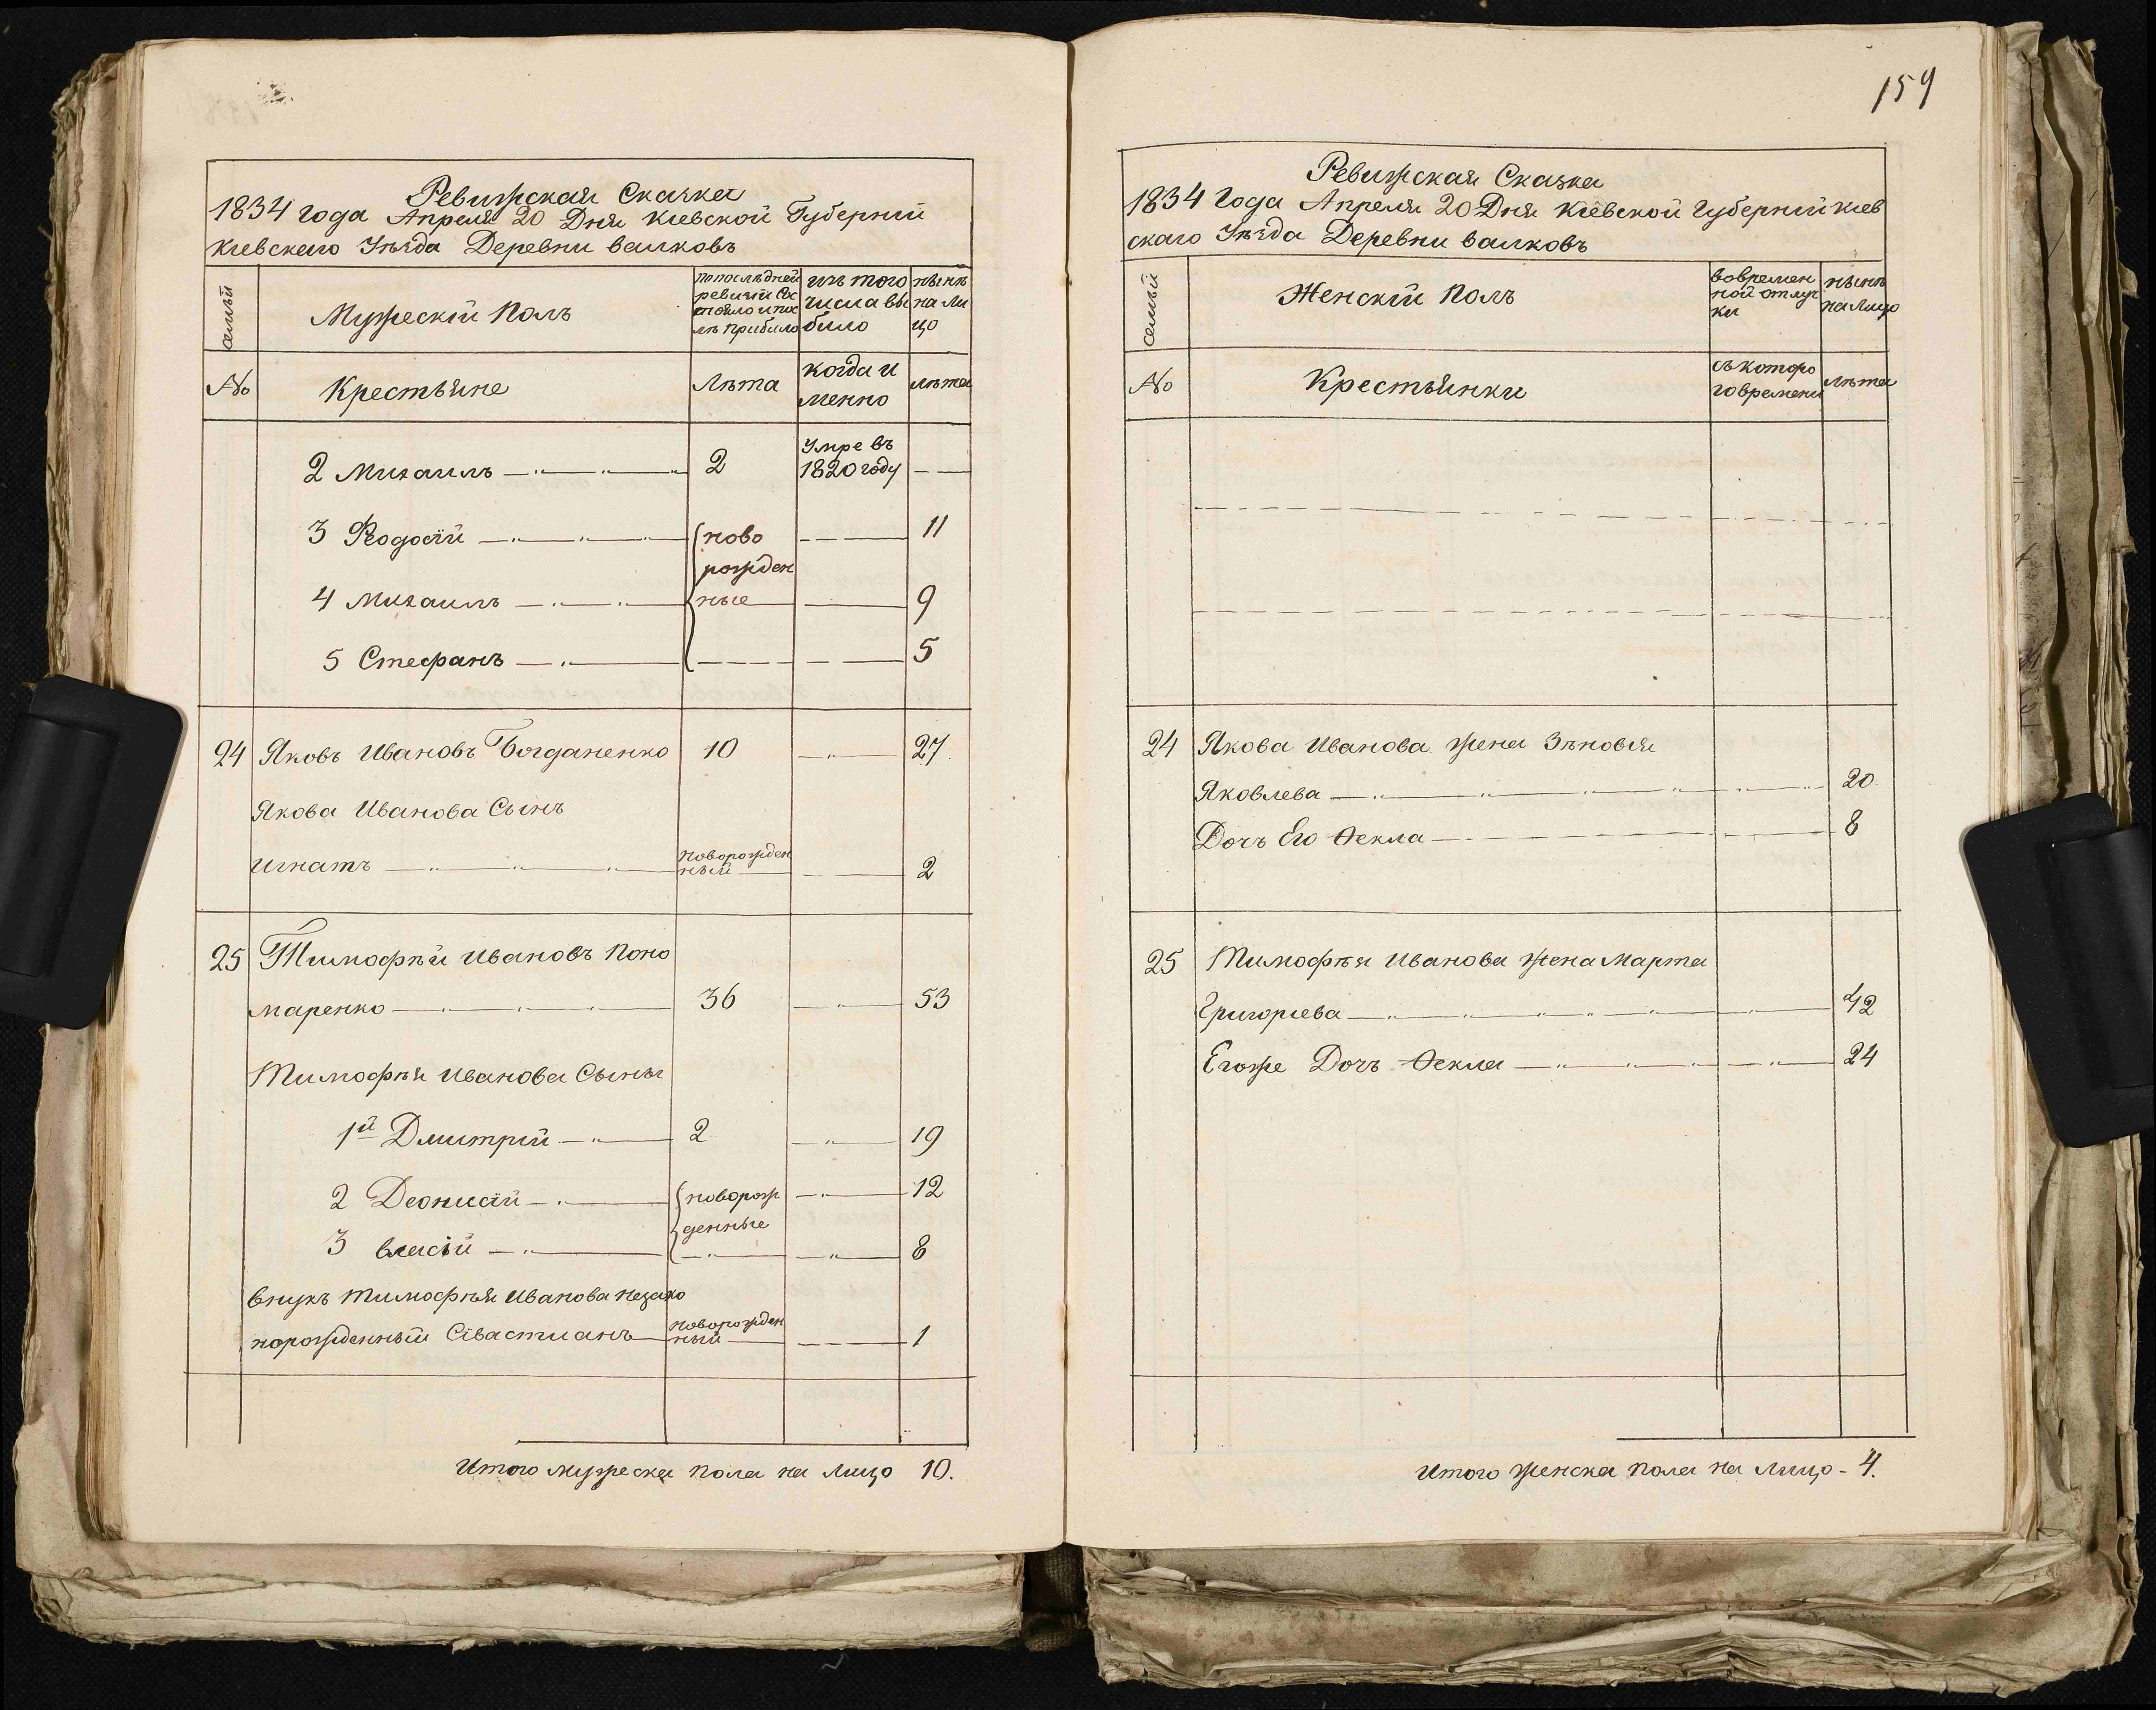 Ревижская Сказка
1834 года Апреля 20 Дня Киевской Губернии
Киевского Уѣзда Деревни Валковъ
семьи
Мужескій Полъ
по послѣдней
ревизии Со
стояло и пос
лѣ прибыло
изъ того
числа вы
било
нынѣ
на ли
цо
№
Крестьяне
Лѣта
когда и
менно
лѣта
2 Михаилъ 2 Умре въ
1820 году
3 Феодосій ново 11
рожден
4 Михаилъ ные 9
5 Стефанъ 5
24 Яковъ Ивановъ Богданенко 10 27
Якова Иванова Сынъ
Игнатъ новорожден
ный 2
25 Тимофѣй Ивановъ Поно
маренко 36 53
Тимофѣя Иванова Сыны
1й Дмитрій 2 19
2 Деонисій новорож 12
денные
3 Власій 8
Внукъ Тимофѣя Иванова незако
норожденный Сівастианъ новорожден
ный 1
Итого мужеска пола на лицо 10.
159
Ревижская Сказка
1834 Года Апреля 20 Дня Кіевской Губерніи Кіев
скаго Уѣзда Деревни Валковъ
семьи
Женскій Полъ
вовремен
ной отлуч
ки
нынѣ
на Лицо
№
Крестьянки
съ которо
го времени
лѣта
24 Якова Иванова жена Зѣновія
Яковлева 20
Дочъ Его Ѳекла 8
25 Тимофѣя Иванова жена Марта
Григориева 42
Егоже Дочъ Ѳекла 24
Итого женска пола на лицо - 4.